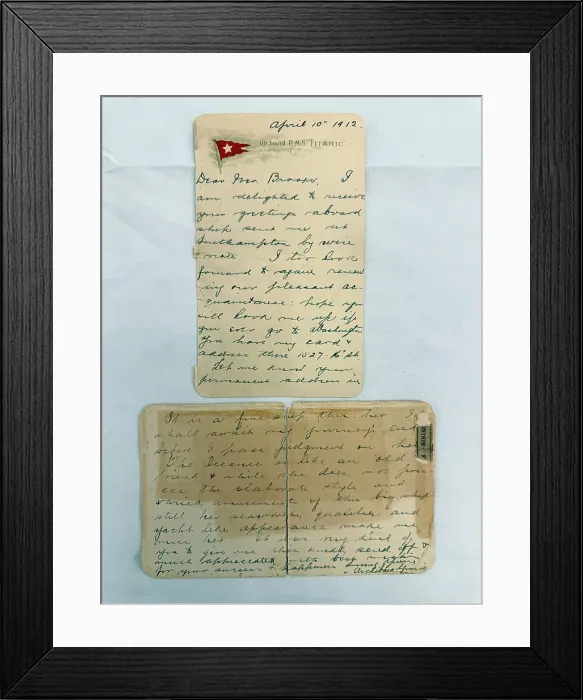 April 10th 1912.
On board R.M.S. "TITANIC"
Dear Mr. Brooks, I
am delighted to receive
your greetings aboard
ship sent me at
Southampton by wire
& note. I too look
forward to again renew
ing our pleasant ac-
quaintance; hope you
will look me up if
you ever go to Washington
You have my card &
address there 1527-K St.
Let me know your
permanent address in
It is a fine ship this but I
shall await my journey's end
before I pass judgment on her
The Oceanic is like an old
friend & while she does not poss-
ess the elaborate style and
varied amusements of this big ship
still her seaworthy qualities and
yacht like appearance make me
miss her. It was very kind of
you to give me this kindly send off &
much appreciated, with best wishes
for your success & happiness
Archibald Gracie